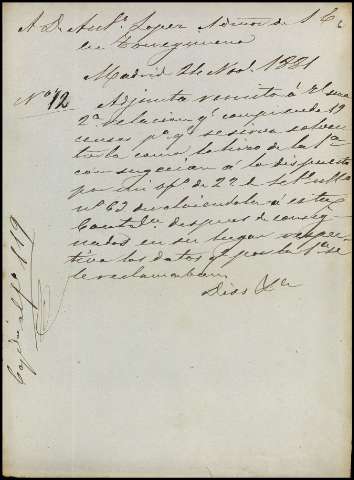 A D. Antº. Lopez Admor de
en
Madrid 24 Novl. 1881
Nº. 12. Adjunta remito á V. una
2ª relacion qe. comprende 19
causas pª. qe. se sirva
como lo hizo de la 1ª
con sugecion á lo dispuesto
por mi ofº. de 22 de Setbe. ultº
nº 62 devolviendola á esta
despues de consig-
nados en su lugar respec-
tivo los datos qe. por la 1ª se
le reclamaban
Dios &ª
Copdo. al fº 119